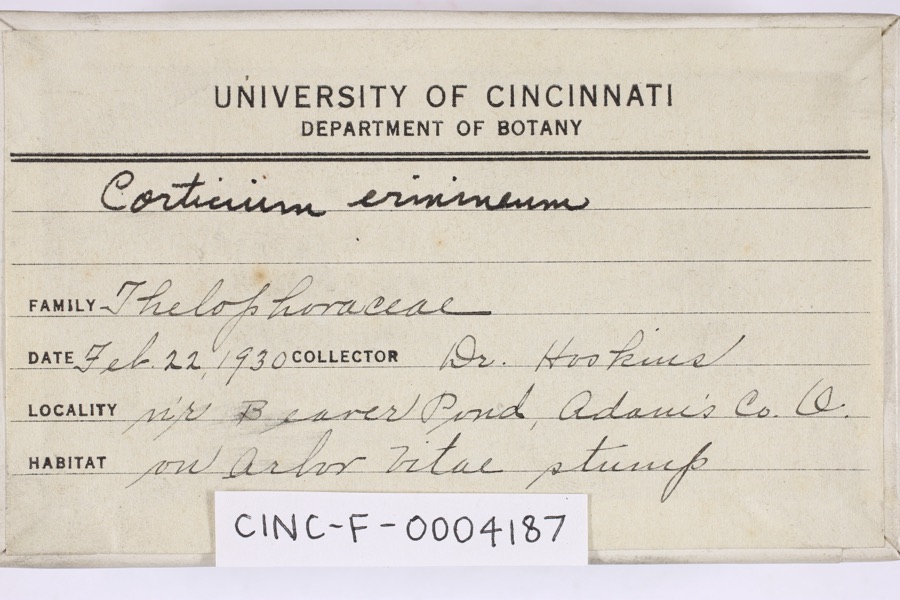 UNIVERSITY OF CINCINNATI
DEPARTMENT OF BOTANY
Corticium ermineum
FAMILY Thelophoraceae
DATE Feb. 22, 1930 COLLECTOR Dr. Hoskins
LOCALITY nr Beaver Pond, Adams Co. O.
HABITAT on Arbor Vitae stump
CINC-F-0004187